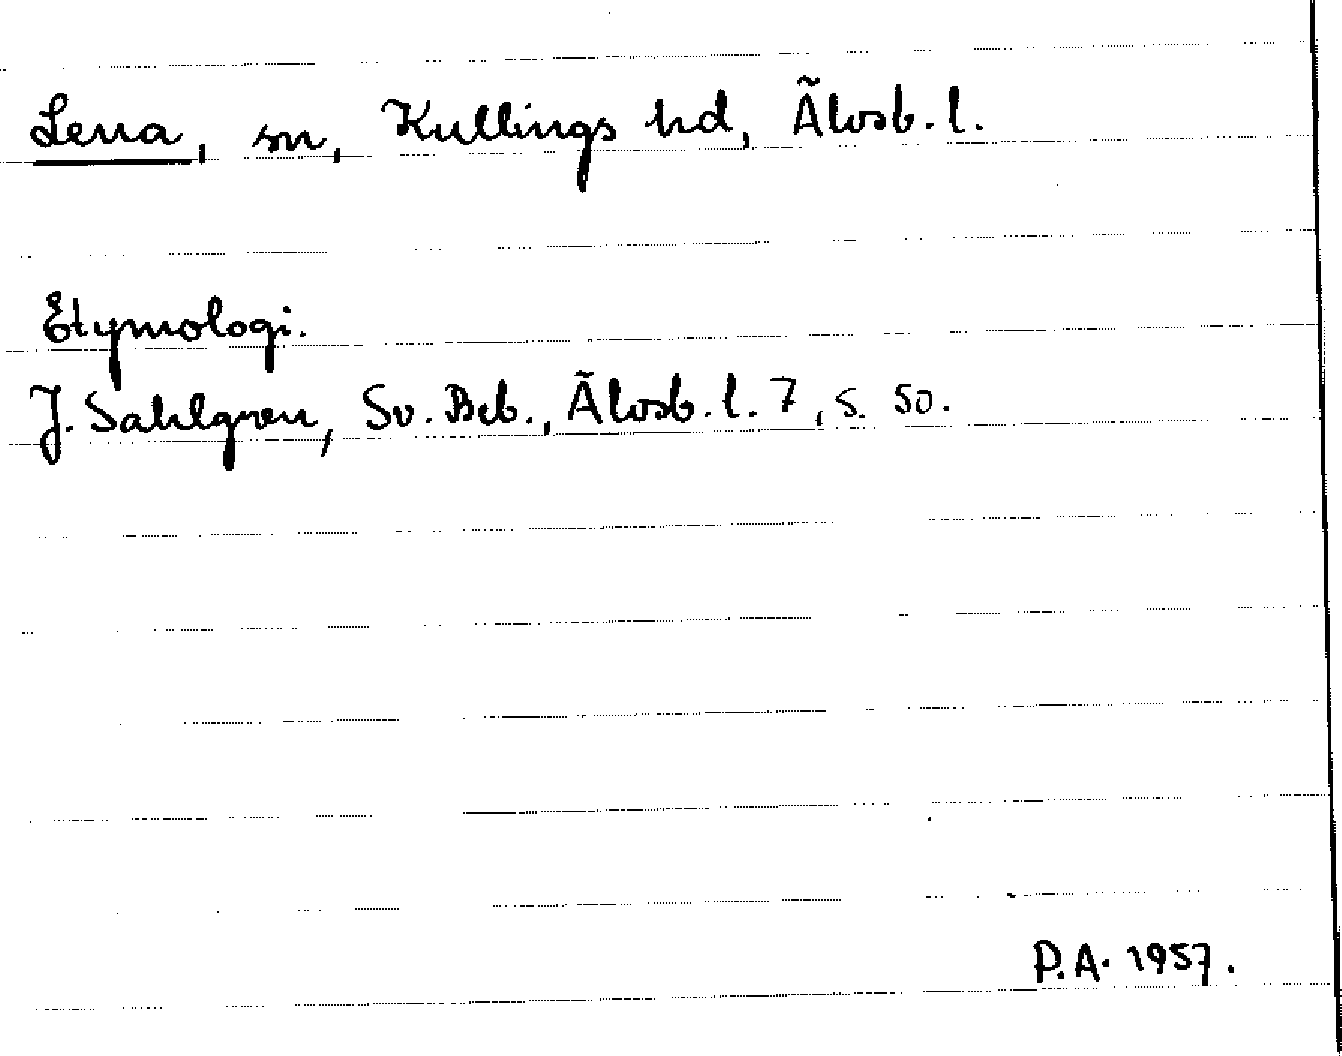 Lena, sn, Kullings hd, Älvsb. l.
Etymologi.
J. Sahlgren, Sv. Beb., Älvsb. l. 7, s. 50.
P.A. 1957.